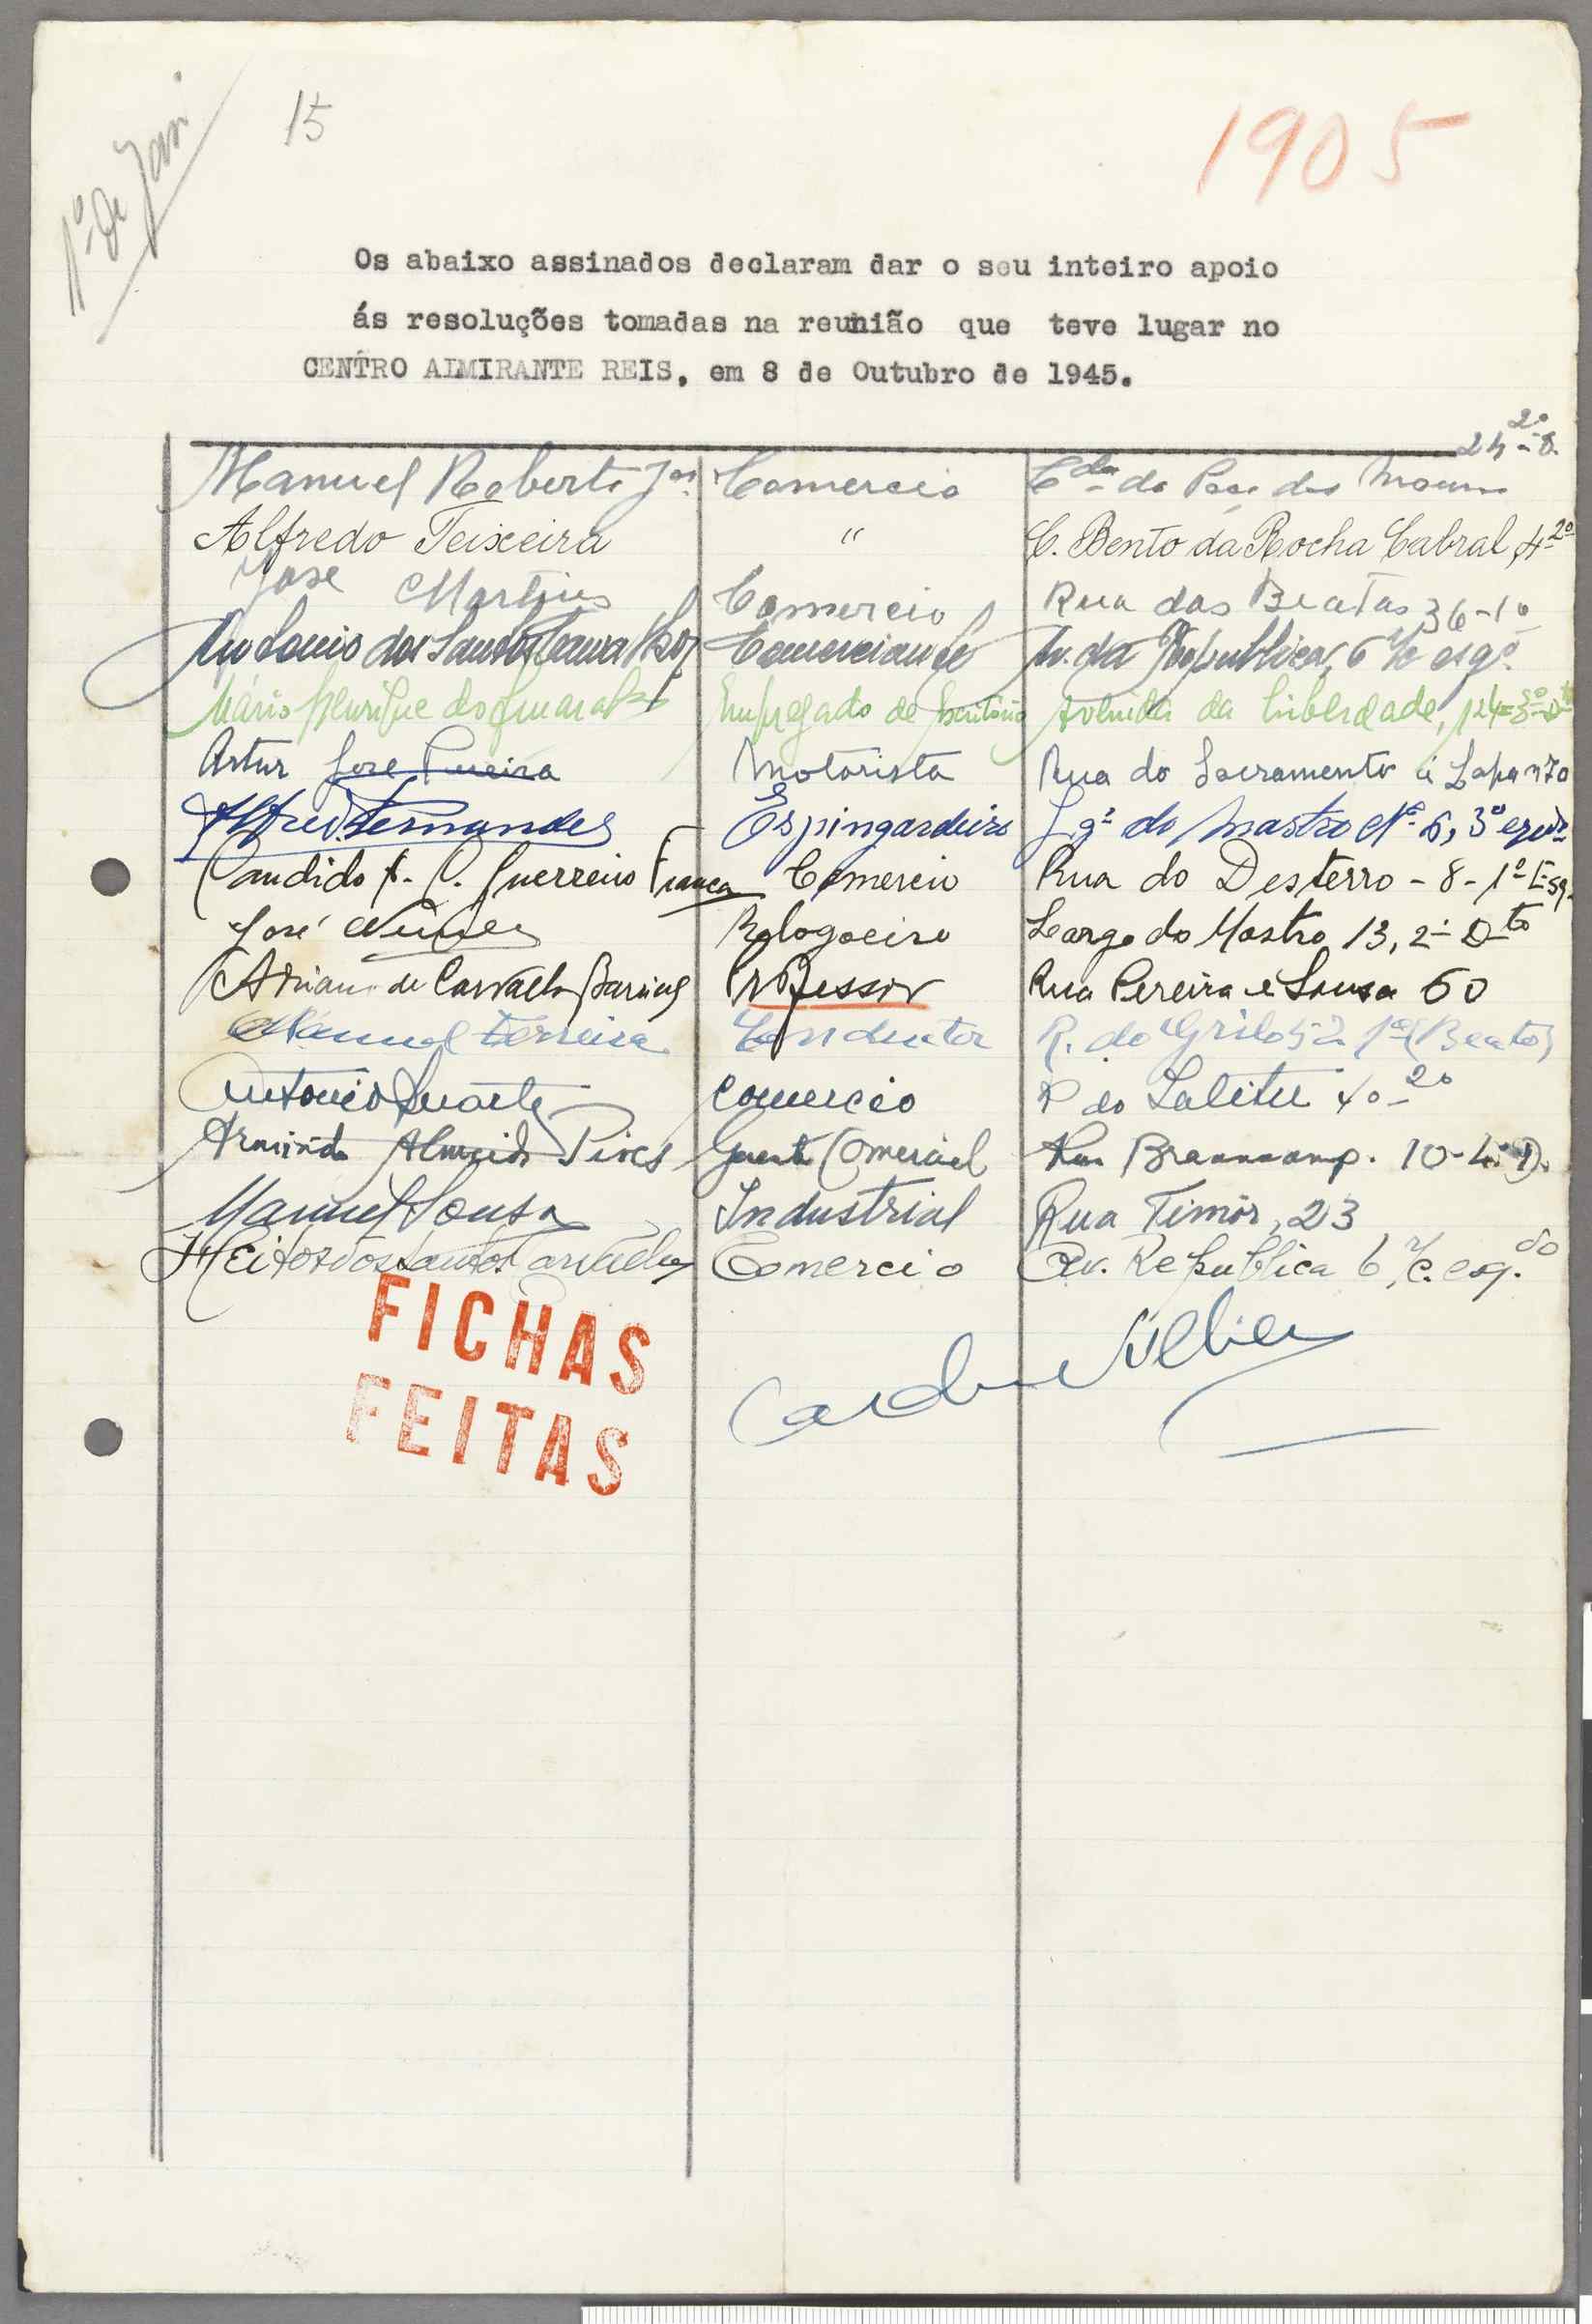 1º de Jan
15
1905
Os abaixo assinados declaram dar o seu inteiro apoio
ás resoluções tomadas na reunião que teve lugar no
CENTRO ALMIRANTE REIS, em 8 de Outubro de 1945.
Manuel Roberto Jor Comercio Cda do Poço dos Mouros 24-2º-D.
Alfredo Teixeira " C. Bento da Rocha Cabral, 4-2º
José Martins Comercio Rua das Beatas 36-1º
Antonio dos Santos Comerciante Av. da Republica, 6 r/c esqº
Mário Henrique do Amaral Empregado de Escritório Avenida da Liberdade, 124-3º-Dto
Artur José Pereira Motorista Rua do Sacramento á Lapa nº 70
Alfredo Fernandes Espingardeiro Lgº do Mastro Nº 6, 3º esqdo
Candido Guerreiro Franca Comercio Rua do Desterro - 8 - 1º Esq.
José Nunes Relogoeiro Largo do Mastro 13, 2º Dto
Adriano de Carvalho Professor Rua Pereira e Sousa 60
Manuel Ferreira Condutor R. do Grilo 1º (Beato)
Antonio Duarte Comercio R do Salitre 40-2º
Armindo Almeida Pires Gerente Comercial Rua Braancamp. 10-4º D.
Manuel Sousa Industrial Rua Timôr, 23
Heitor dos Santos Carvalho Comercio Av. Republica 6 r/c. esq.do
FICHAS
FEITAS